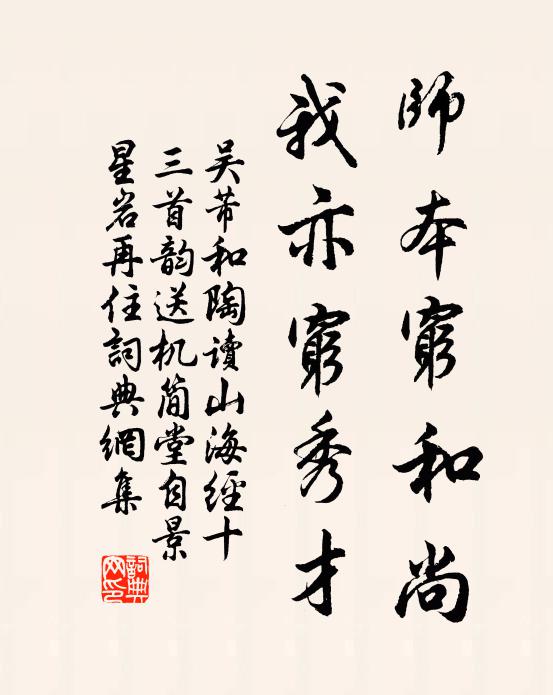 師本窮和尚
我亦窮秀才
吴芾和陶讀山海經十
三首韵送机簡堂自景
星岩再住詞典網集
詞典
网印